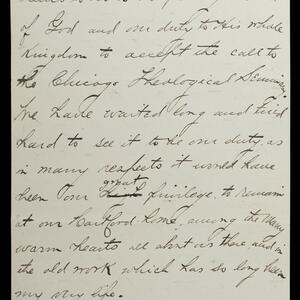 of God and our duty to His whole
Kingdom to accept the call to
the Chicago Theological Seminary.
We have waited long and tried
hard to see it to be our duty, as
in many respects it would have
been our great privilege to remain
at our Hartford home, among the many
warm hearts all about us there, and in
the old work which has so long been
my very life.